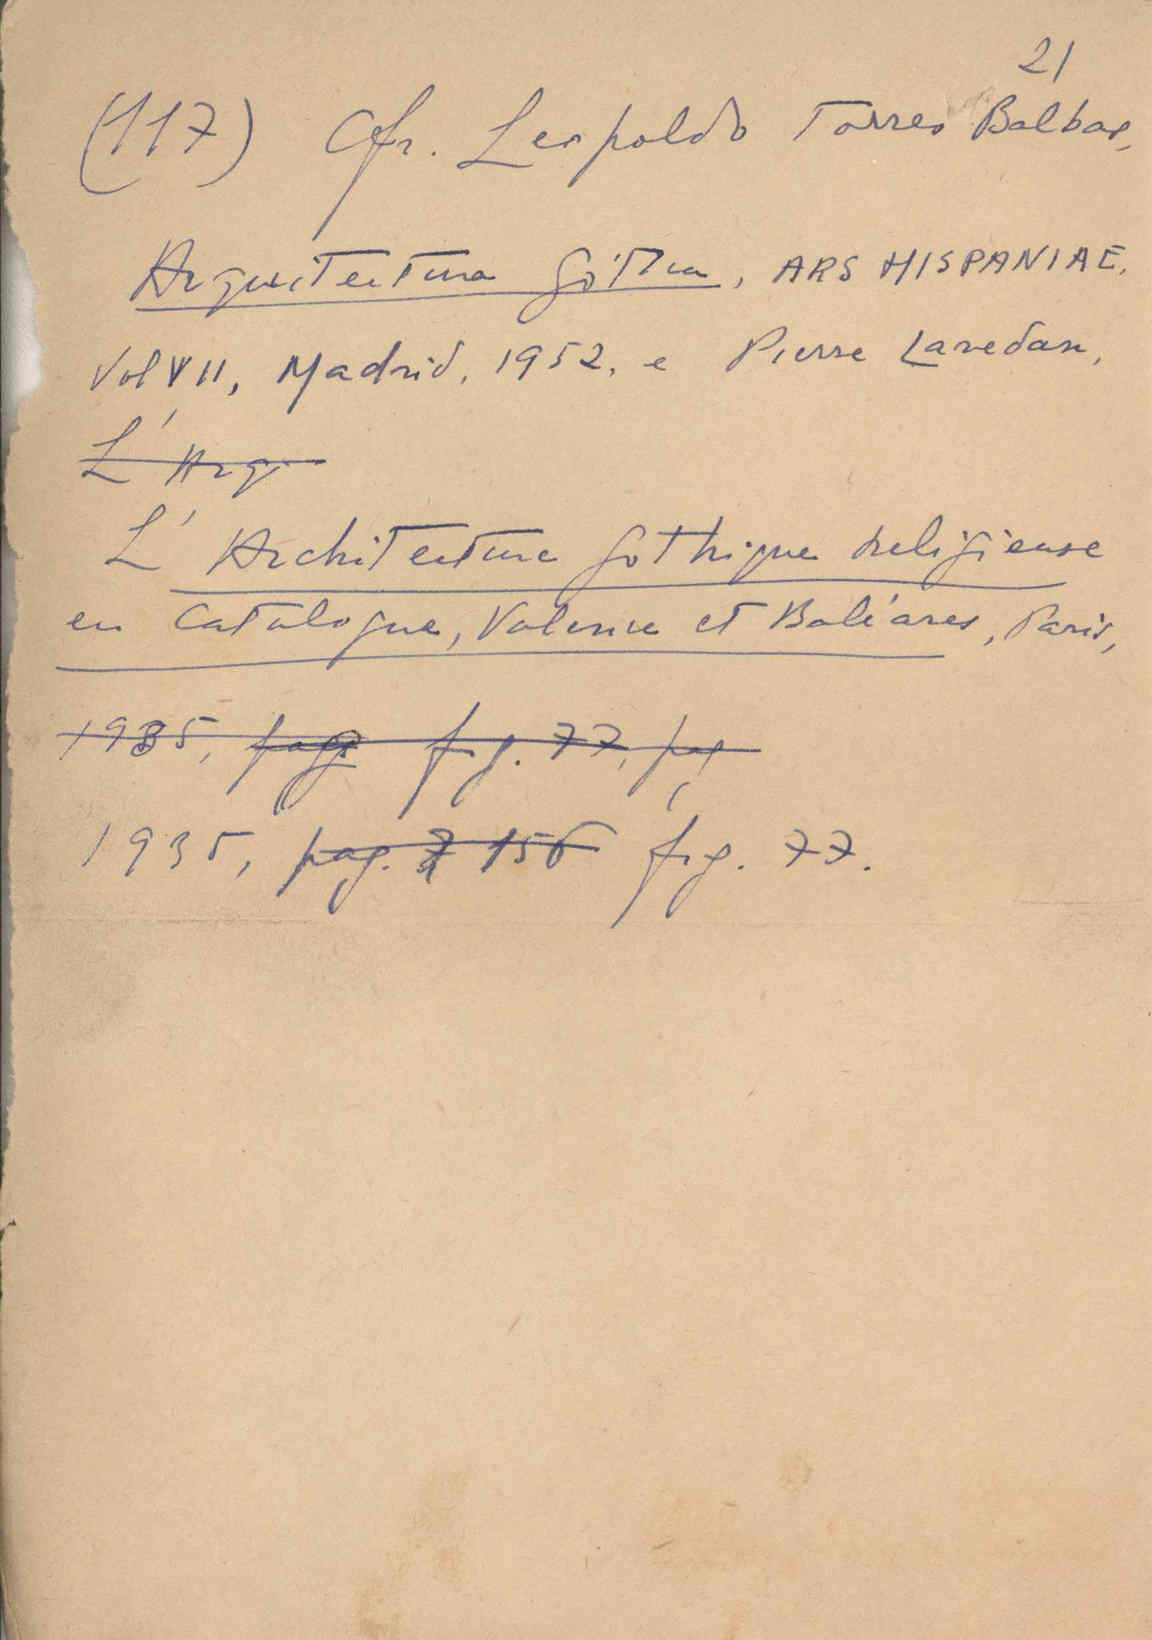 21
(117) Cfr. Leopoldo Torres Balbas,
Arquitectura Gótica, ARS HISPANIAE,
Vol VII, Madrid, 1952, e Pierre Lavedan,
L'Arq
L'Architecture gothique religieuse
en Catalogne, Valence et Baléares, Paris,
1935, pag fig. 77, pag
1935, pag. 156 fig. 77.